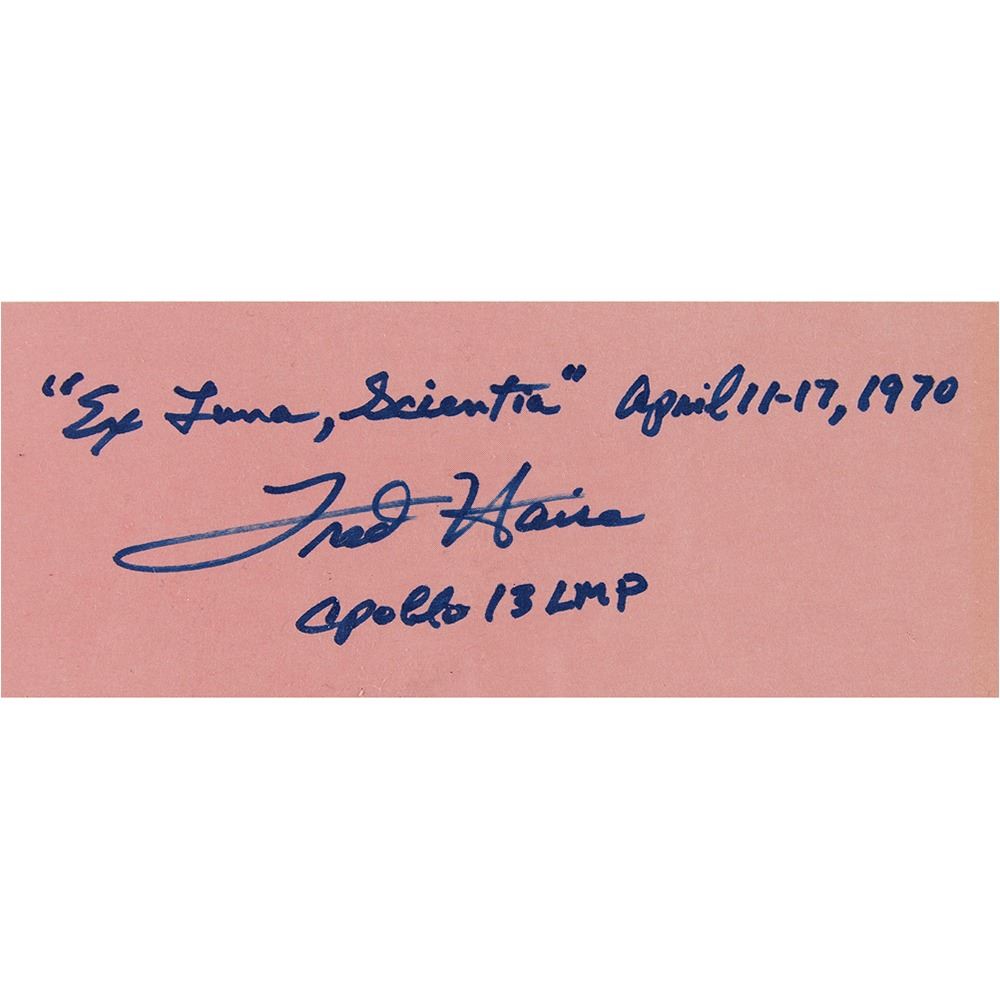 "Ex Luna, Scientia" April 11-17, 1970
Fred Haise
Apollo 13 LMP